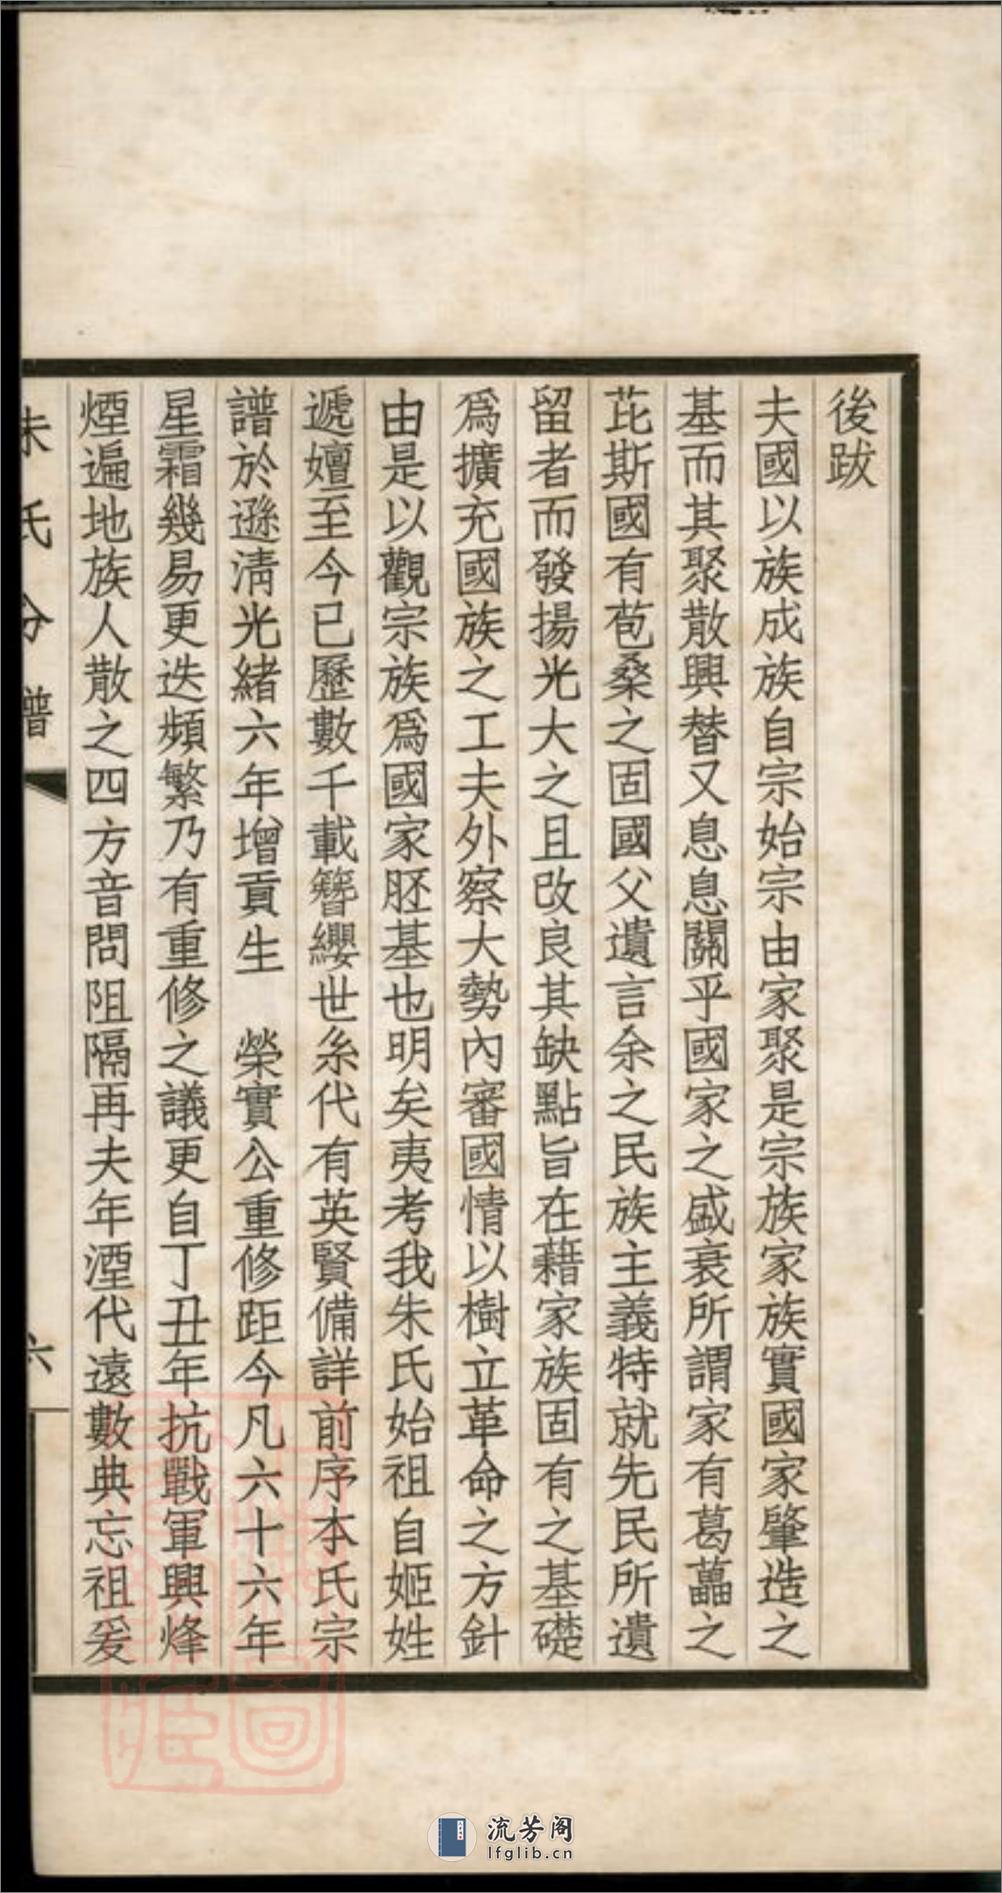 後跋
夫國以族成族自宗始宗由家聚是宗族家族實國家肇造之
基而其聚散興替又息息關乎國家之盛衰所謂家有葛藟之
芘斯國有苞桑之固國父遺言余之民族主義特就先民所遺
留者而發揚光大之且改良其缺點旨在藉家族固有之基礎
爲擴充國族之工夫外察大勢內審國情以樹立革命之方針
由是以觀宗族爲國家胚基也明矣夷考我朱氏始祖自姬姓
遞嬗至今已歷數千載簪纓世系代有英賢備詳前序本氏宗
譜於遜清光緒六年增貢生　榮實公重修距今凡六十六年
星霜幾易更迭頻繁乃有重修之議更自丁丑年抗戰軍興烽
煙遍地族人散之四方音問阻隔再夫年湮代遠數典忘祖爰
朱氏分譜
六
流芳阁
lfglib.cn